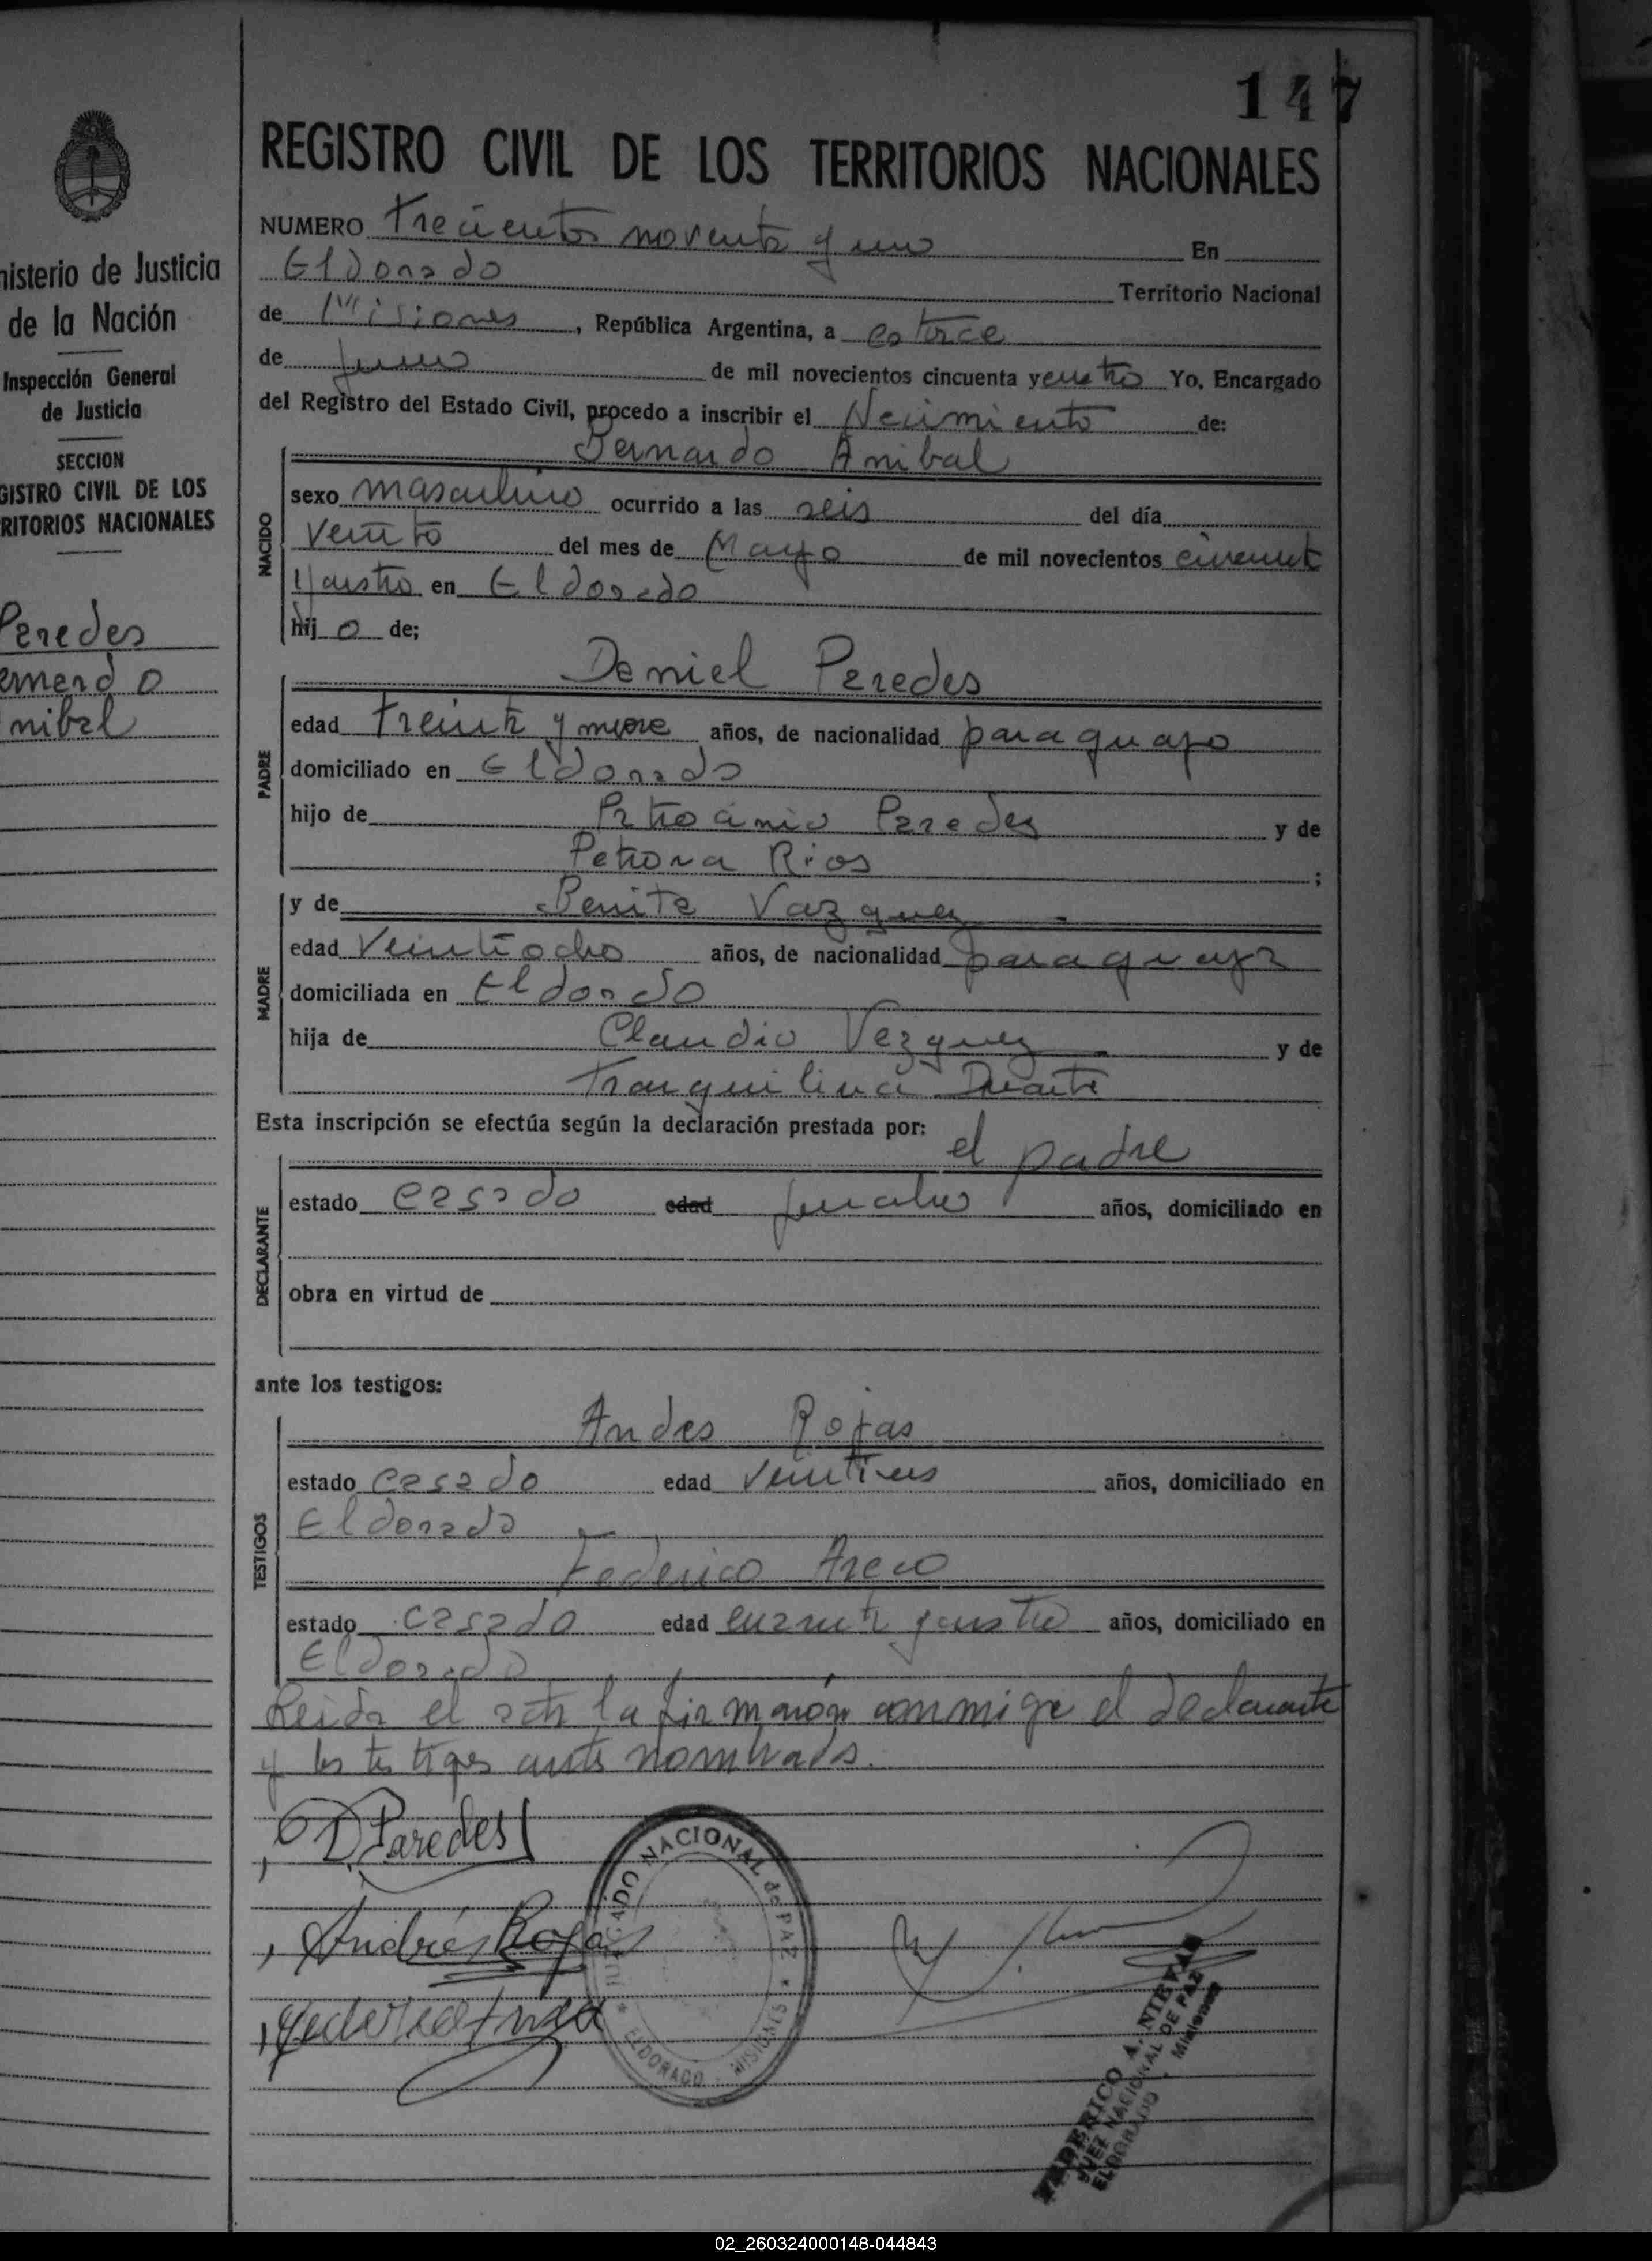 147
REGISTRO CIVIL DE LOS TERRITORIOS NACIONALES
nisterio de Justicia
de la Nación
Inspección General
de Justicia
SECCION
GISTRO CIVIL DE LOS
RITORIOS NACIONALES
Peredes
ernerdo
nibal
NUMERO Trecientos noventa y uno En
Eldorado Territorio Nacional
de Misiones, República Argentina, a catorce
de Junio de mil novecientos cincuenta y cuatro Yo, Encargado
del Registro del Estado Civil, procedo a inscribir el Necimiento de:
Bernardo Anibal
NACIDO
sexo masculino ocurrido a las seis del día
Veinte del mes de Mayo de mil novecientos cincuenta
y cuatro en Eldorado
hij o de;
Daniel Peredes
PADRE
edad treinta y nueve años, de nacionalidad paraguayo
domiciliado en Eldorado
hijo de Patrocinio Paredes y de
Petrona Rios ;
y de Benita Vazquez
MADRE
edad Veintiocho años, de nacionalidad paraguaya
domiciliada en Eldorado
hija de Claudio Vezquez y de
Tranquilina Duarte
Esta inscripción se efectúa según la declaración prestada por:
el padre
DECLARANTE
estado casado edad años, domiciliado en
obra en virtud de
ante los testigos:
Andes Rojas
TESTIGOS
estado casado edad años, domiciliado en
Eldorado
Federico Areco
estado casado edad cuarenta y cuatro años, domiciliado en
Eldorado
Leida el acta la firmaron conmigo el declarante
y los testigos ante nombrados.
D. Paredes
Andrés Rojas
JUZGADO NACIONAL de PAZ * ELDORADO - MISIONES *
FEDERICO A.
JUEZ NACIONAL DE PAZ
ELDORADO - Misiones
02_260324000148-044843